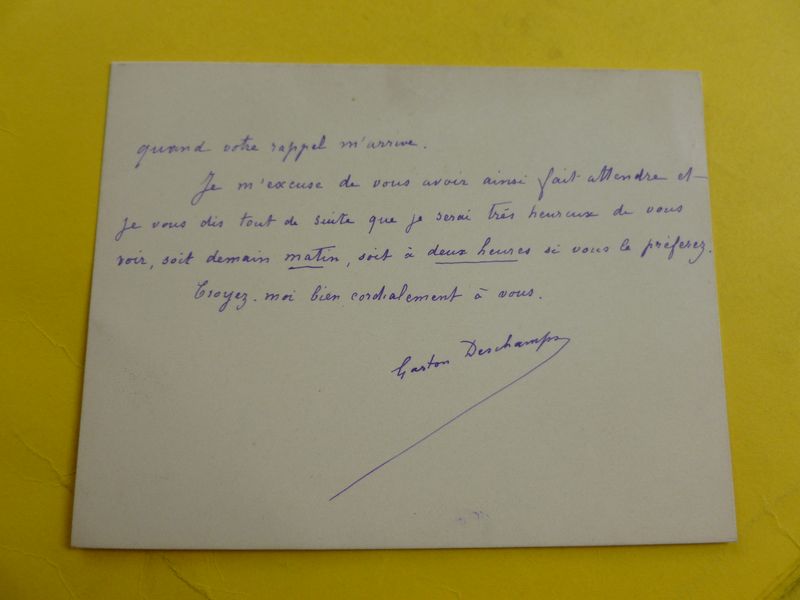 quand votre rappel m'arrive.
Je m'excuse de vous avoir ainsi fait attendre et
je vous dis tout de suite que je serai très heureux de vous
voir, soit demain matin, soit à deux heures si vous le préferez.
Croyez-moi bien cordialement à vous.
Gaston Deschamps